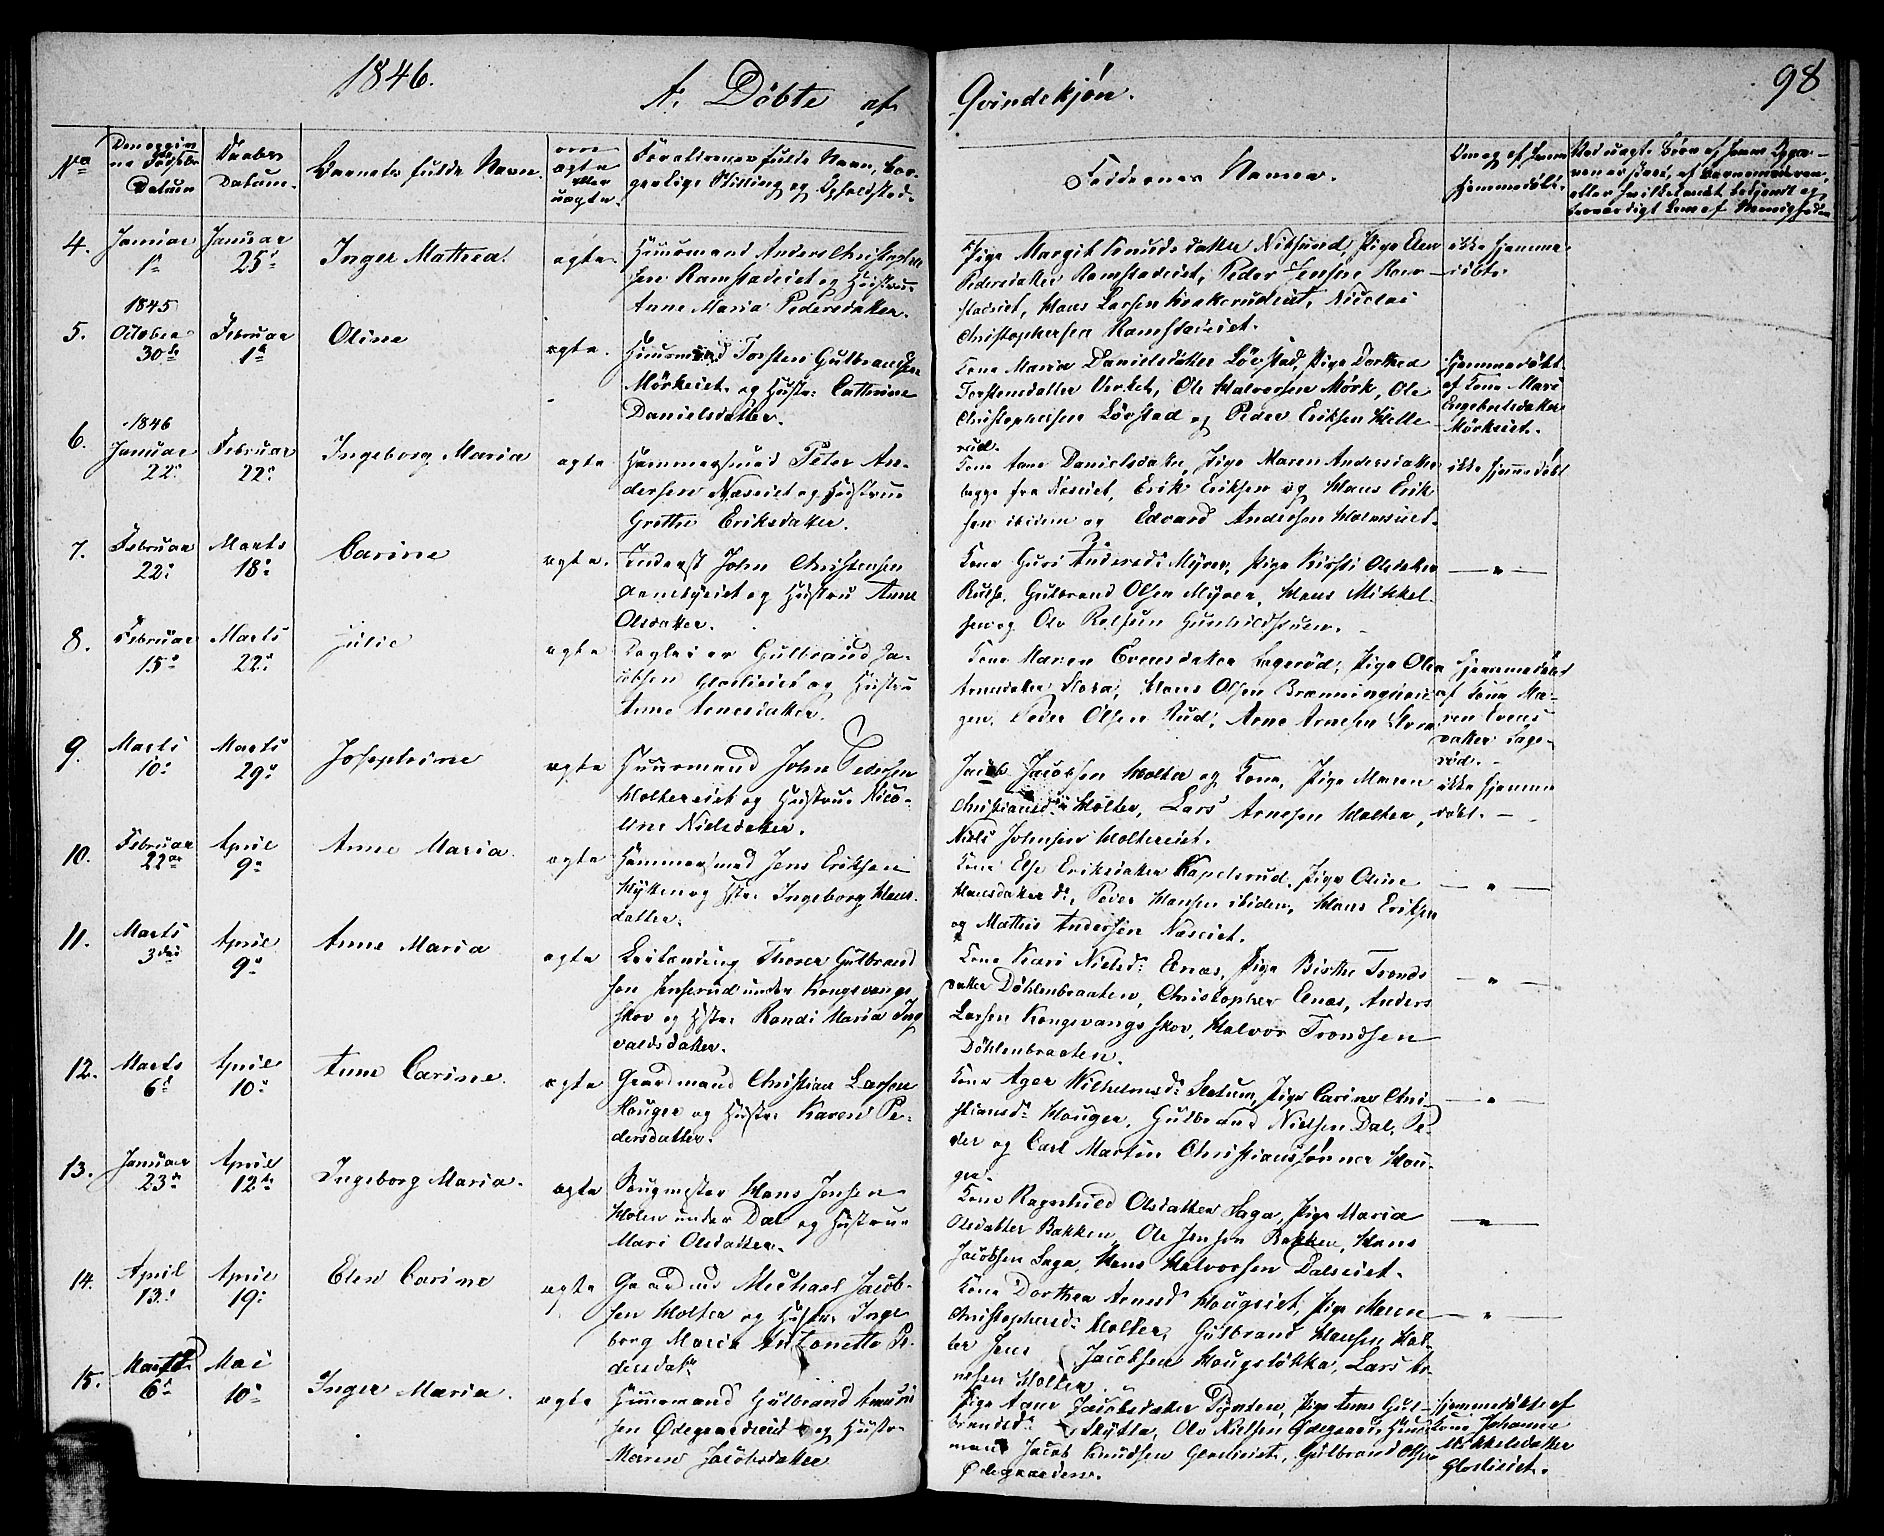 1846.
A. Døbte af Qvindekjøn.
98
No
Datum
Daabens Datum.
Barnets fulde Navn.
om ægte eller uægte.
Forældrenes fulde Navn, borgerlige Stilling og Opholdsted.
Faddernes Navne.
4.
Januar 1te
Januar 25de
Inger Mathea.
ægte.
Huusmand Anders Christopher
sen Ramstadeiet og Hustrue
Anne Maria Pedersdatter.
Pige Margit Knudsdatter Pige Elen
Pedersdatter Ramstadeiet, Peder Jensen Ram-
stadeiet, Hans Larsen Nicolai
Christophersen Ramstadeiet.
ikke hjemme-
døbt.
5.
1845
October 30te
Februar 1te
Oline
ægte.
Huusmand Torsten Gulbrandsen
Mørkeiet og Hustr: Cathrine
Danielsdatter.
Kone Maria Danielsdatter Løvstad, Pige Dorthea
Torstensdatter Ole Halvorsen Mørk, Ole
Christophersen Løvstad og Peder Eriksen Helle-
rud.
hjemmedøbt
af Kone Mari
Engebretsdatter
Mørkeiet.
6.
1846
Januar 22de
Februar 22de
Ingeborg Maria
ægte
Hammersmed Peter An-
dersen Næseiet og Hustrue
Grethe Eriksdatter.
Kone Anne Danielsdatter, Pige Maren Andersdatter
begge fra Næseiet, Erik Eriksen og Hans Erik
sen ibidem og Edvard Andersen Holmseiet.
ikke hjemmedøbt
7.
Februar 22de
Marts 18de
Carine
ægte.
Inderst John Christensen
og Hustru Anne
Olsdatter.
Kone Guri Andersd: Myrer, Pige Kirsti Olsdatter
Gulbrand Olsen Myrer, Hans Mikkel-
sen og Ole
— " —
8.
Februar 15de
Marts 22de
Julie
ægte
Gulbrand Ja-
cobsen Gloslieiet og Hustru
Anne Arnesdatter.
Kone Maren Evensdatter Sagerød, Pige Olea
Arnesdatter Hora, Hans Olsen
Peder Olsen Rud, Arne Arnesen Hora
hjemmedøbt
af Kone Ma-
ren Evens
datter Sage-
rød.
9.
Marts 10de
Marts 29de
Josephine
ægte
Huusmand John Pedersen
Holtereiet og Hustrue Nico-
line Nielsdatter.
Jacob Jacobsen Holter og Kone, Pige Maren
Christiansd: Holter, Lars Arnesen Holter,
Niels Johnsen Holtereiet.
ikke hjemme
døbt.
10.
Februar 22de
April 9de
Anne Maria
ægte
Hammersmed Jens Eriksen
og Hstr: Ingeborg Hans-
datter.
Kone Else Eriksdatter Kapelsrud, Pige Oline
Hansdatter do, Peder Hansen ibidem, Hans Eriksen
og Mathis Andersen Næseiet.
— " —
11.
Marts 3die
April 9de
Anne Maria
ægte
Leilænding Thorer Gulbrand
sen Jensrud under Kongsvangs
skov og Hstr: Randi Maria Ing
valdsdatter.
Kone Kari Nielsd: Enæs, Pige Birthe Tronds
datter Døhlenbraaten, Christopher Enæs, Anders
Larsen Kongsvangsskov, Halvor Trondsen
Døhlenbraaten.
— " —
12.
Marts 6te
April 10de
Anne Carine
ægte
Gaardmand Christian Larsen
Houger og Hustr: Karen Pe-
dersdatter.
Kone Wilhelmsd: Pige Carine Chri-
stiansd: Houger, Gulbrand Nielsen Dal, Pe-
der og Carl Martin Christianssønner Hou-
ger.
— " —
13.
Januar 23de
April 12te
Ingeborg Maria.
ægte
Hans Jensen
Holen under Dal og Hustrue
Mari Olsdatter.
Kone Ragnhild Olsdatter Saga, Pige Maria
Olsdatter Bakken, Ole Jensen Bakken, Hans
Jacobsen Saga, Hans Halvorsen Dalseiet.
— " —
14.
April 13de
April 19de
Elen Carine
ægte
Gaardmd Michael Jacob-
sen Holter og Hustr: Inge
borg Maria Antonette Pe-
dersdatr
Kone Dorthea Arnesd: Hougseiet, Pige Maren
Christophersd: Holter, Gulbrand Hansen Hol-
ter Jens Jacobsen Hougsløkka, Lars Ar-
nesen Holter
— " —
15.
Marts 6te
Mai 10de
Inger Maria.
ægte
Huusmand Gulbrand Knud
sen Ødegaardseiet og Hustr:
Maren Jacobsdatter
Pige Anne Jacobsdatter Pige Anne Gul-
brandsd: Ole Nielsen Ødegaard, Huus
mand Jacob Knudsen Gloslieiet, Gulbrand Olsen
Ødegaarden.
hjemmedøbt af
Kone Johanne
Mikkelsdatter
Gloslieiet.